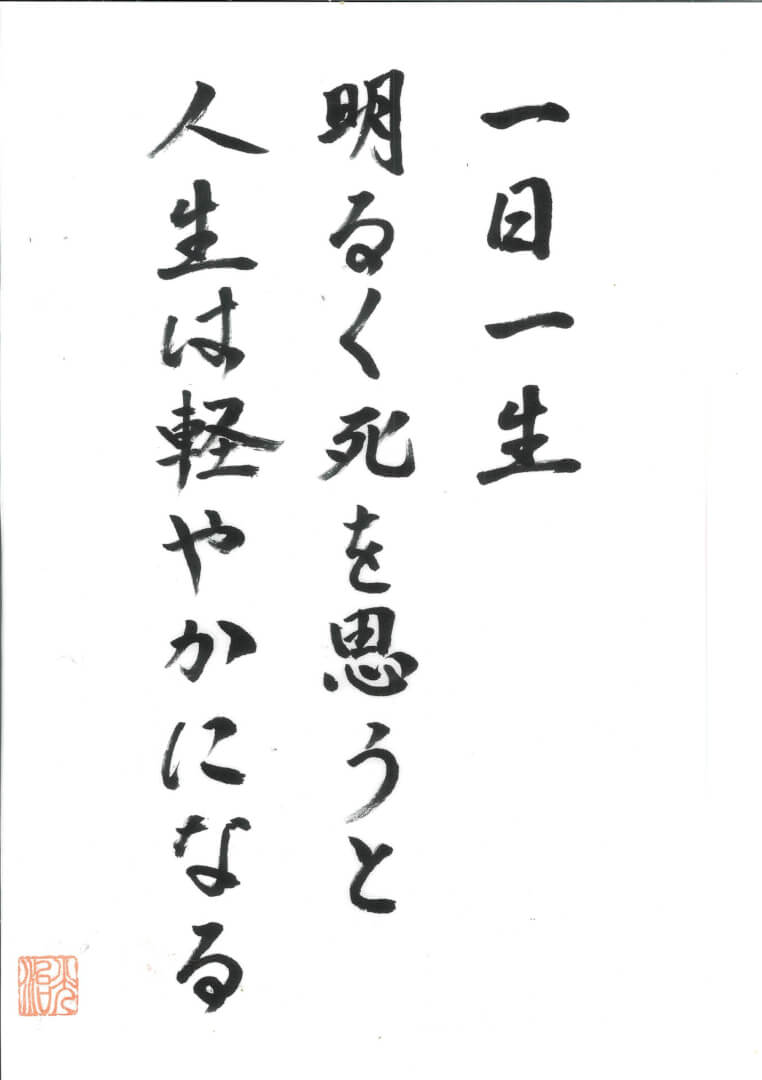 一日一生
明るく死を思うと
人生は軽やかになる